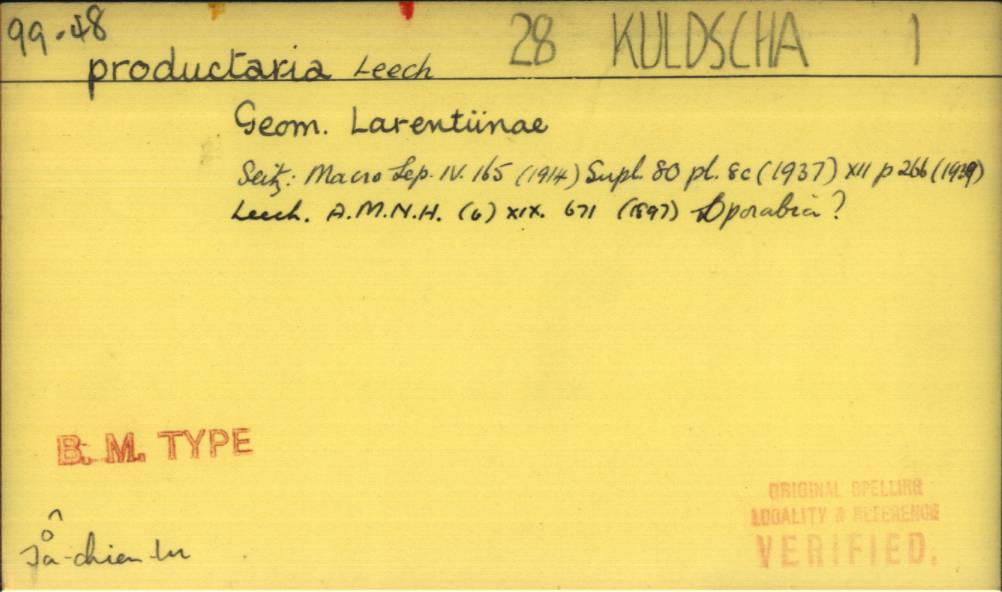 99.48
productaria Leech 28 KULDSCHA 1
Geom. Larentiinae
Seitz: Macro Lep. IV. 165 (1914) Supl. 80 pl. 8c (1937) XII p 266 (1939)
Leech. A.M.N.H. (6) XIX. 671 (1897) Oporabia?
B. M. TYPE
ORIGINAL SPELLING
LOCALITY & REFERENCE
VERIFIED.
Ta-chien-lu